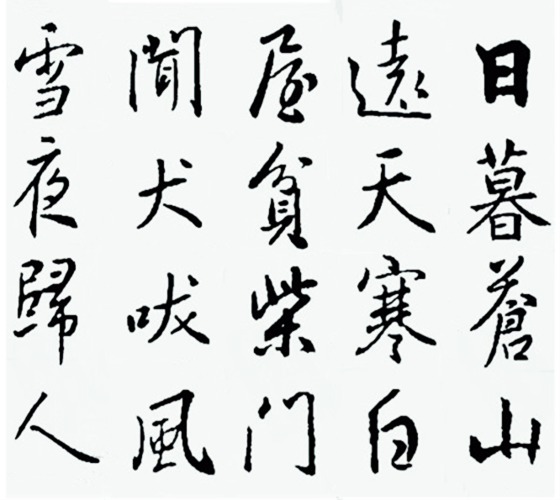 日暮蒼山
遠天寒白
屋貧柴門
聞犬吠風
雪夜歸人